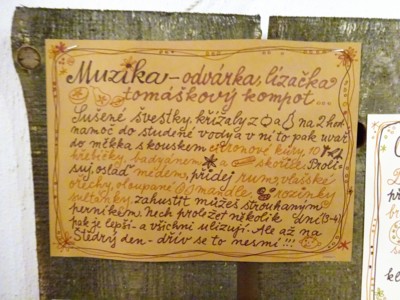 Muzika - odvárka, lízačka
tomáškový kompot...
Sušené švestky, křížaly z a na 2 hod.
namoč do studené vody a v ní to pak uvař
do měkka s kouskem citronové kůry, 10
hřebíčky, badyánem, skořice. Proli-
suj, oslaď medem, přidej rum, vlašské
ořechy, oloupané mandle, rozinky
sultánky, zahustit můžeš strouhaným
perníkem. Nech proležet několik dní (3-4)
pak je lepší - a všichni ulizují. Ale až na
Štědrý den - dřív se to nesmí!!!